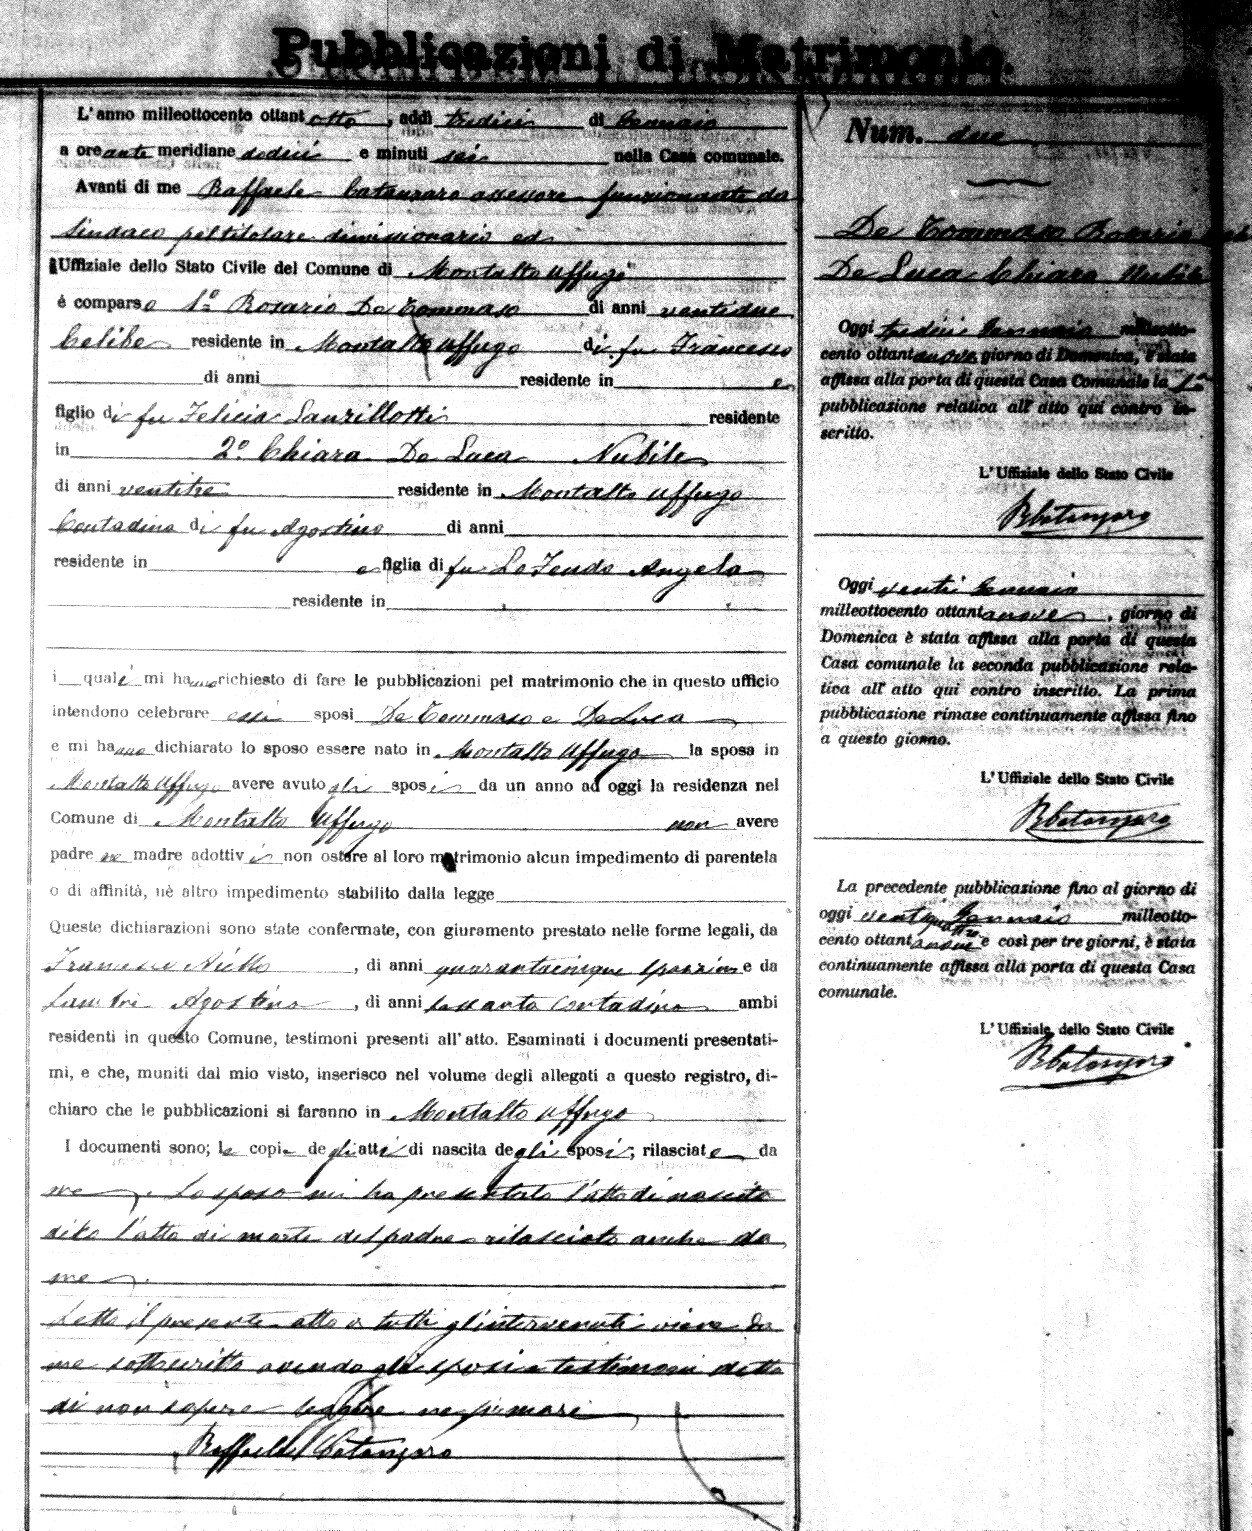 Pubblicazioni di Matrimonio.
L'anno milleottocento ottant otto, addì tredici di Gennaio
a ore ante meridiane dodici e minuti sei nella Casa comunale.
Avanti di me Raffaele Catanzaro assessore funzionante da
Sindaco pel titolare dimissionario ed
Uffiziale dello Stato Civile del Comune di Montalto Uffugo
è comparso 1º Rosario De Tommaso di anni ventidue
Celibe residente in Montalto Uffugo di fu Francesco
di anni residente in e
figlio di fu Felicia Lanzillotti residente
in 2º Chiara De Luca Nubile
di anni ventitre residente in Montalto Uffugo
Contadina di fu Agostino di anni
residente in e figlia di fu Lo Feudo Angela
residente in
i quali mi hanno richiesto di fare le pubblicazioni pel matrimonio che in questo ufficio
intendono celebrare essi sposi De Tommaso e De Luca
e mi hanno dichiarato lo sposo essere nato in Montalto Uffugo la sposa in
Montalto Uffugo avere avuto gli sposi da un anno ad oggi la residenza nel
Comune di Montalto Uffugo non avere
padre ne madre adottivi non ostare al loro matrimonio alcun impedimento di parentela
o di affinità, nè altro impedimento stabilito dalla legge
Queste dichiarazioni sono state confermate, con giuramento prestato nelle forme legali, da
Francesco Aiello, di anni quarantacinque e da
Agostino, di anni sessanta contadino ambi
residenti in questo Comune, testimoni presenti all'atto. Esaminati i documenti presentati-
mi, e che, muniti dal mio visto, inserisco nel volume degli allegati a questo registro, di-
chiaro che le pubblicazioni si faranno in Montalto Uffugo
I documenti sono; le copie degli atti di nascita degli sposi; rilasciate da
me. Lo sposo mi ha presentato l'atto di nascita
dippiù l'atto di morte del padre rilasciato anche da
me.
Letto il presente atto a tutti gl'intervenuti viene da
me sottoscritto avendo gli sposi e testimoni detto
di non sapere leggere ne firmare
Raffaele Catanzaro
Num. due
De Tommaso Rosario
De Luca Chiara Nubile
Oggi tredici Gennaio milleotto-
cento ottantanove giorno di Domenica, è stata
affissa alla porta di questa Casa Comunale la 1ª
pubblicazione relativa all'atto qui contro in-
scritto.
L'Uffiziale dello Stato Civile
RCatanzaro
Oggi venti Gennaio
milleottocento ottantanove, giorno di
Domenica è stata affissa alla porta di questa
Casa comunale la seconda pubblicazione rela-
tiva all'atto qui contro inscritto. La prima
pubblicazione rimase continuamente affissa fino
a questo giorno.
L'Uffiziale dello Stato Civile
RCatanzaro
La precedente pubblicazione fino al giorno di
oggi ventiquattro Gennaio milleotto-
cento ottantanove e così per tre giorni, è stata
continuamente affissa alla porta di questa Casa
comunale.
L'Uffiziale dello Stato Civile
RCatanzaro